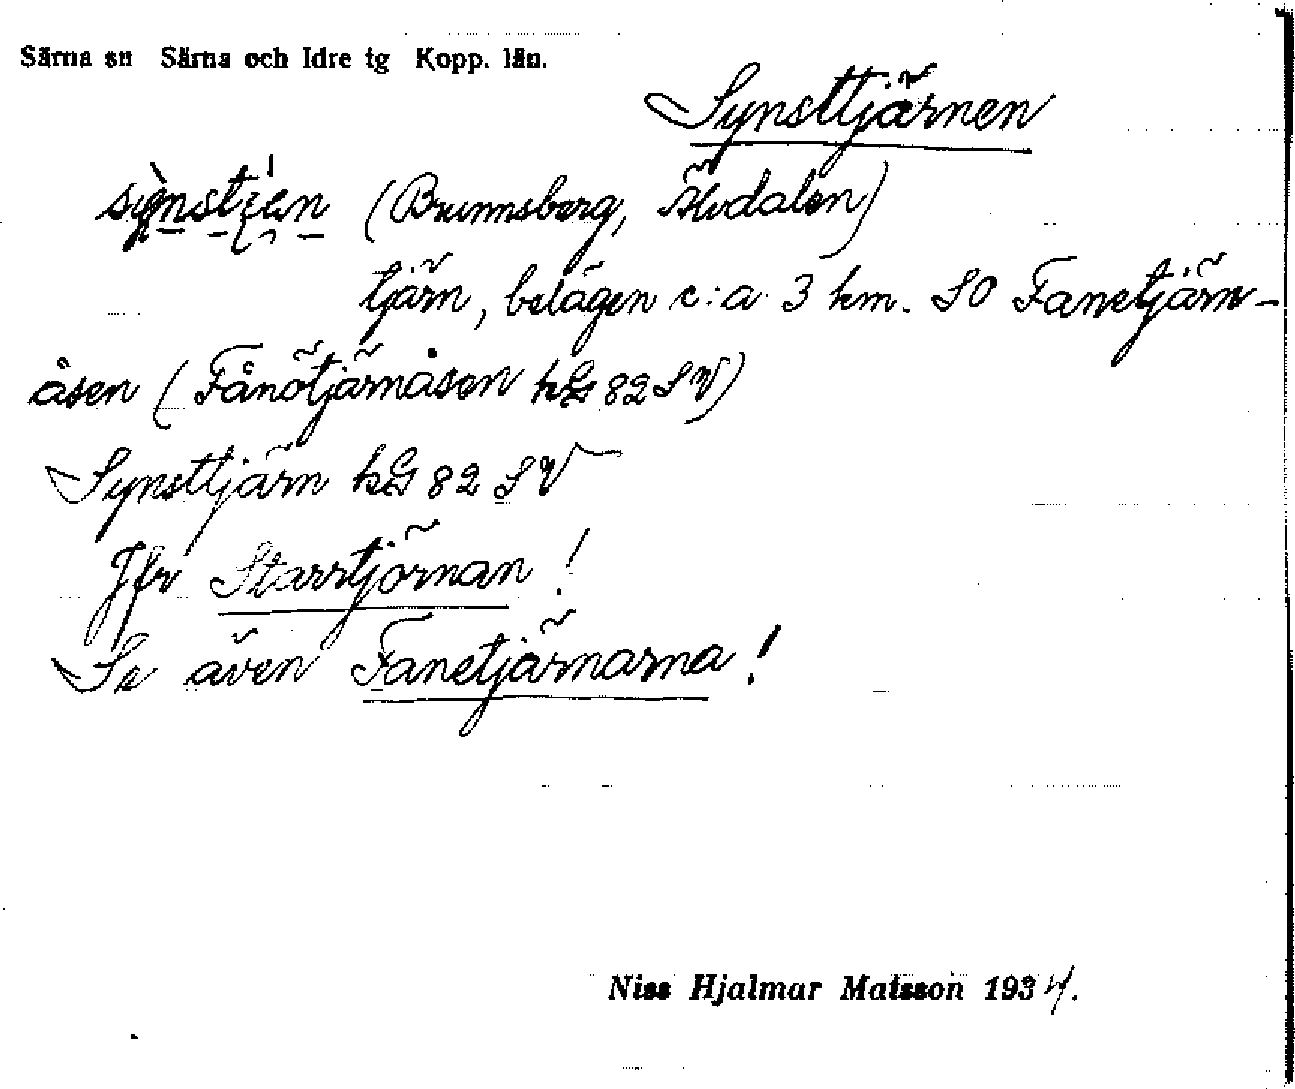 Särna sn Särna och Idre tg Kopp. län.
Synsttjärnen
(Brunnsberg, Älvdalen)
tjärn, belägen c:a 3 km. SO Fanetjärn-
åsen (Fånötjärnåsen kG 82 SV)
Synsttjärn kG 82 SV
Jfr Starrtjörnan!
Se även Fanetjärnarna!
Niss Hjalmar Matsson 1934.